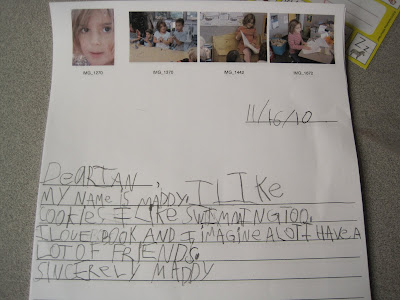 IMG_1270 IMG_1370 IMG_1442 IMG_1572
11/16/10
DeAR IAN,
MY NAMe iS MADDY. I LIKe
COOKieS I LIKe SWIMMING TOO.
I LOVE BOOK AND I IMAGINE A LOT I HAVe A
LOT OF FRIENDS.
SINCERELY MADDY